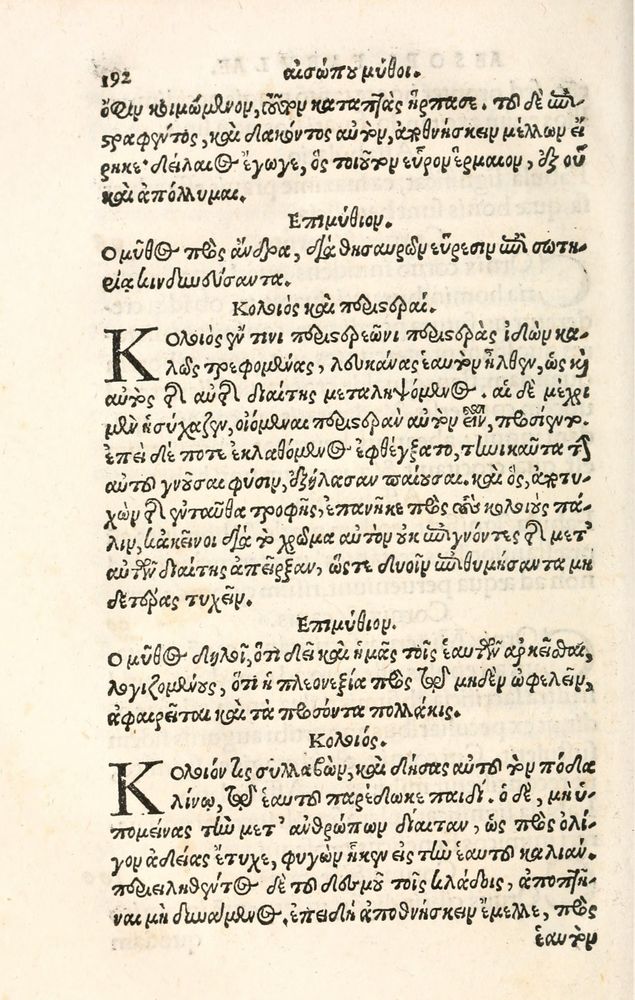 192 αἰσώπου μῦθοι.
ὄφιν κοιμώμενον, τοῦτον καταπτὰς ἥρπασε. τοῦ δὲ ἐπι-
στραφέντος, καὶ δακόντος αὐτὸν, ἀποθνήσκειν μέλλων εἴ-
ρηκε· δείλαιος ἔγωγε, ὃς τοιοῦτον εὗρον ἕρμαιον, ἐξ οὗ
καὶ ἀπόλλυμαι.
Επιμύθιον.
Ο μῦθος πρὸς ἄνδρα, διὰ θησαυρῶν εὕρεσιν ἐπὶ σωτη-
ρίᾳ κινδυνεύσαντα.
Κολοιὸς καὶ περιστεραί.
Κολοιὸς ἔν τινι περιστερεῶνι περιστερὰς ἰδὼν κα-
λῶς τρεφομένας, λευκάνας ἑαυτὸν ἦλθεν, ὡς καὶ
αὐτὸς τῆς αὐτῆς διαίτης μεταληψόμενος. αἱ δὲ μέχρι
μὲν ἡσύχαζεν, οἰόμεναι περιστερὰν αὐτὸν εἶναι, προσίεντο.
ἐπεὶ δέ ποτε ἐκλαθόμενος ἐφθέγξατο, τηνικαῦτα τὴν
αὐτοῦ γνοῦσαι φύσιν, ἐξήλασαν παίουσαι. καὶ ὃς, ἀποτυ-
χὼν τῆς ἐνταῦθα τροφῆς, ἐπανῆκε πρὸς τοὺς κολοιοὺς πά-
λιν, κἀκεῖνοι διὰ τὸ χρῶμα αὐτὸν οὐκ ἐπιγνόντες τῆς μετ'
αὐτῶν διαίτης ἀπεῖρξαν, ὥστε δυοῖν ἐπιθυμήσαντα μη
δετέρας τυχεῖν.
Επιμύθιον.
Ο μῦθος δηλοῖ, ὅτι δεῖ καὶ ἡμᾶς τοῖς ἑαυτῶν ἀρκεῖσθαι,
λογιζομένους, ὅτι ἡ πλεονεξία πρὸς τῷ μηδὲν ὠφελεῖν,
ἀφαιρεῖται καὶ τὰ προσόντα πολλάκις.
Κολοιός.
Κολοιόν τις συλλαβὼν, καὶ δήσας αὐτοῦ τὸν πόδα
λίνῳ, τῷ ἑαυτοῦ παρέδωκε παιδί. ὁ δὲ, μὴ ὑ-
πομείνας τὴν μετ' ἀνθρώπων δίαιταν, ὡς πρὸς ὀλί-
γον ἀδείας ἔτυχε, φυγὼν ἧκεν εἰς τὴν ἑαυτοῦ καλιάν.
περιειληθέντος δὲ τοῦ δεσμοῦ τοῖς κλάδοις, ἀποπτῆ-
ναι μὴ δυνάμενος, ἐπειδὴ ἀποθνήσκειν ἔμελλε, πρὸς
ἑαυτὸν